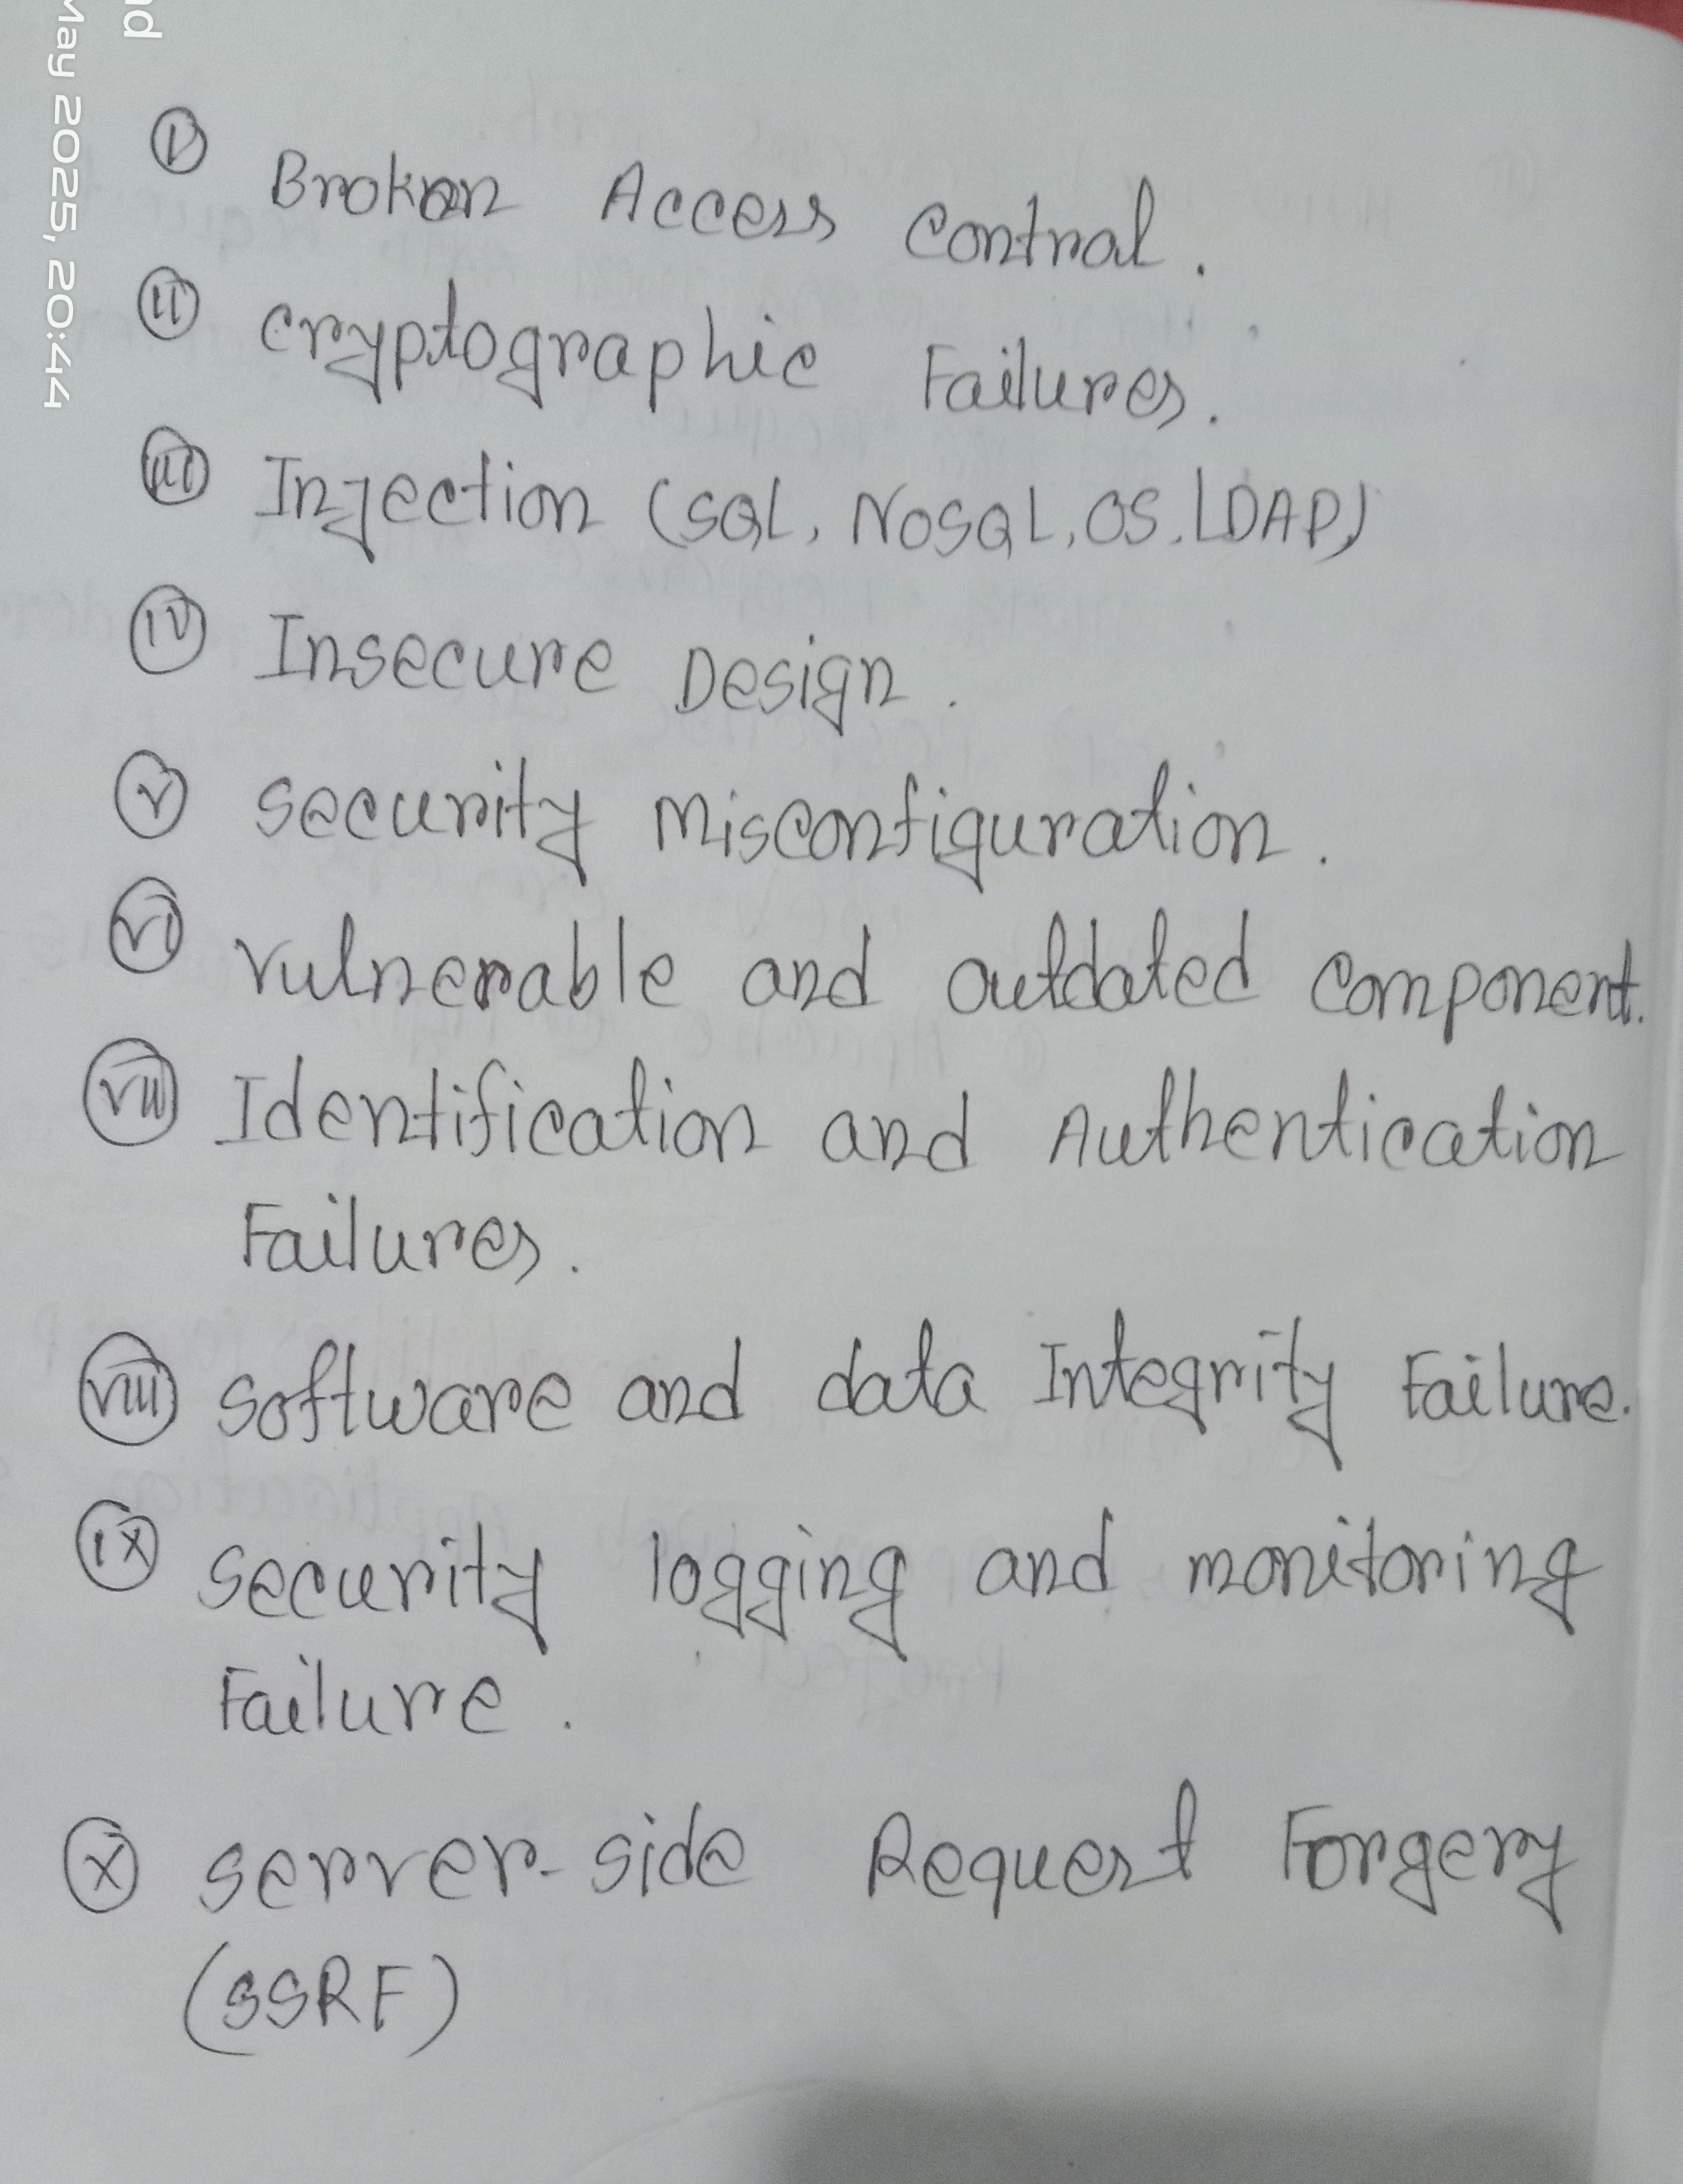 i) Broken Access Control.
ii) Cryptographic Failures.
iii) Injection (SQL, NoSQL, OS, LDAP)
iv) Insecure Design.
v) Security Misconfiguration.
vi) Vulnerable and outdated component.
vii) Identification and Authentication
Failures.
viii) Software and data Integrity Failure.
ix) Security logging and monitoring
Failure.
x) Server-side Request Forgery
(SSRF)
nd
May 2025, 20:44